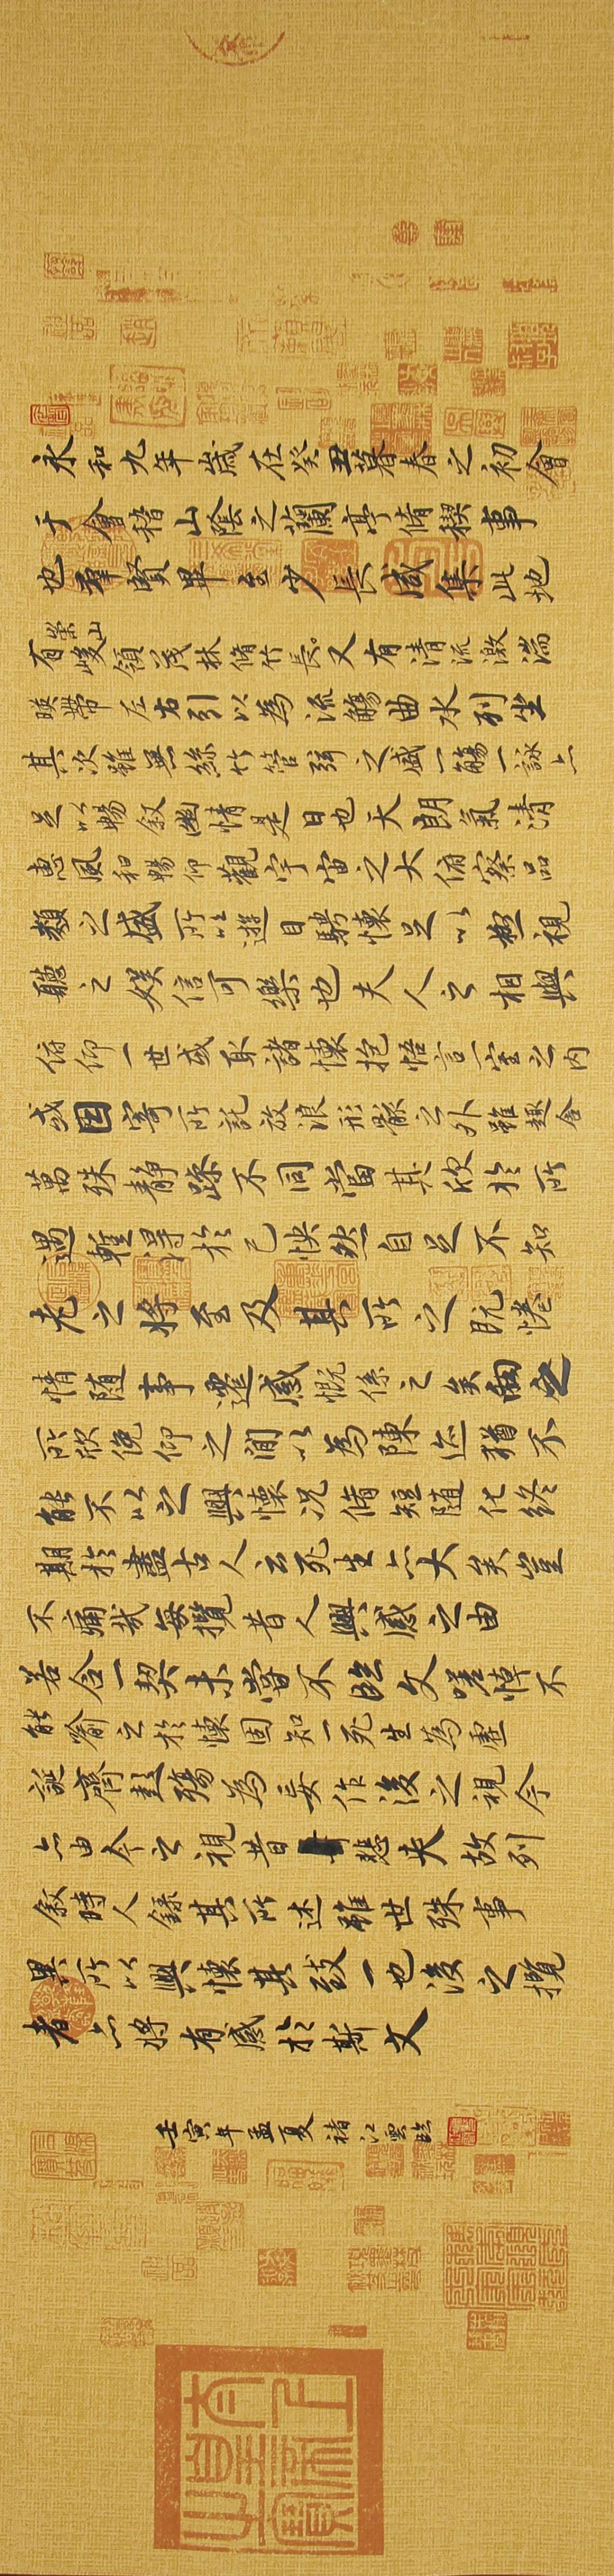 永和九年歲在癸丑暮春之初會
于會稽山陰之蘭亭脩稧事
也群賢畢至少長咸集此地
有崇山峻領茂林脩竹又有清流激湍
暎帶左右引以為流觴曲水列坐
其次雖無絲竹管弦之盛一觴一詠亦
足以暢敘幽情是日也天朗氣清
惠風和暢仰觀宇宙之大俯察品
類之盛所以遊目騁懷足以極視
聽之娛信可樂也夫人之相與
俯仰一世或取諸懷抱悟言一室之內
或因寄所託放浪形骸之外雖趣舍
萬殊靜躁不同當其欣於所
遇暫得於己怏然自足不知
老之將至及其所之既惓
情隨事遷感慨係之矣向之
所欣俛仰之間以為陳迹猶不
能不以之興懷況脩短隨化終
期於盡古人云死生亦大矣豈
不痛哉每攬昔人興感之由
若合一契未嘗不臨文嗟悼不
能喻之於懷固知一死生為虛
誕齊彭殤為妄作後之視今
亦由今之視昔悲夫故列
敘時人錄其所述雖世殊事
異所以興懷其致一也後之攬
者亦將有感於斯文
壬寅年孟夏褚江雲臨